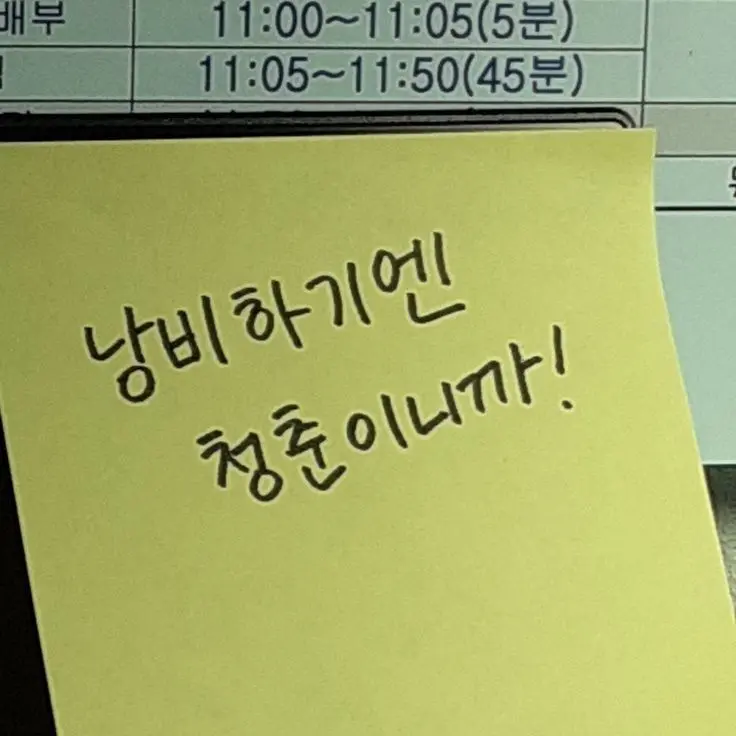 배부 11:00~11:05(5분)
11:05~11:50(45분)
낭비하기엔
청춘이니까!